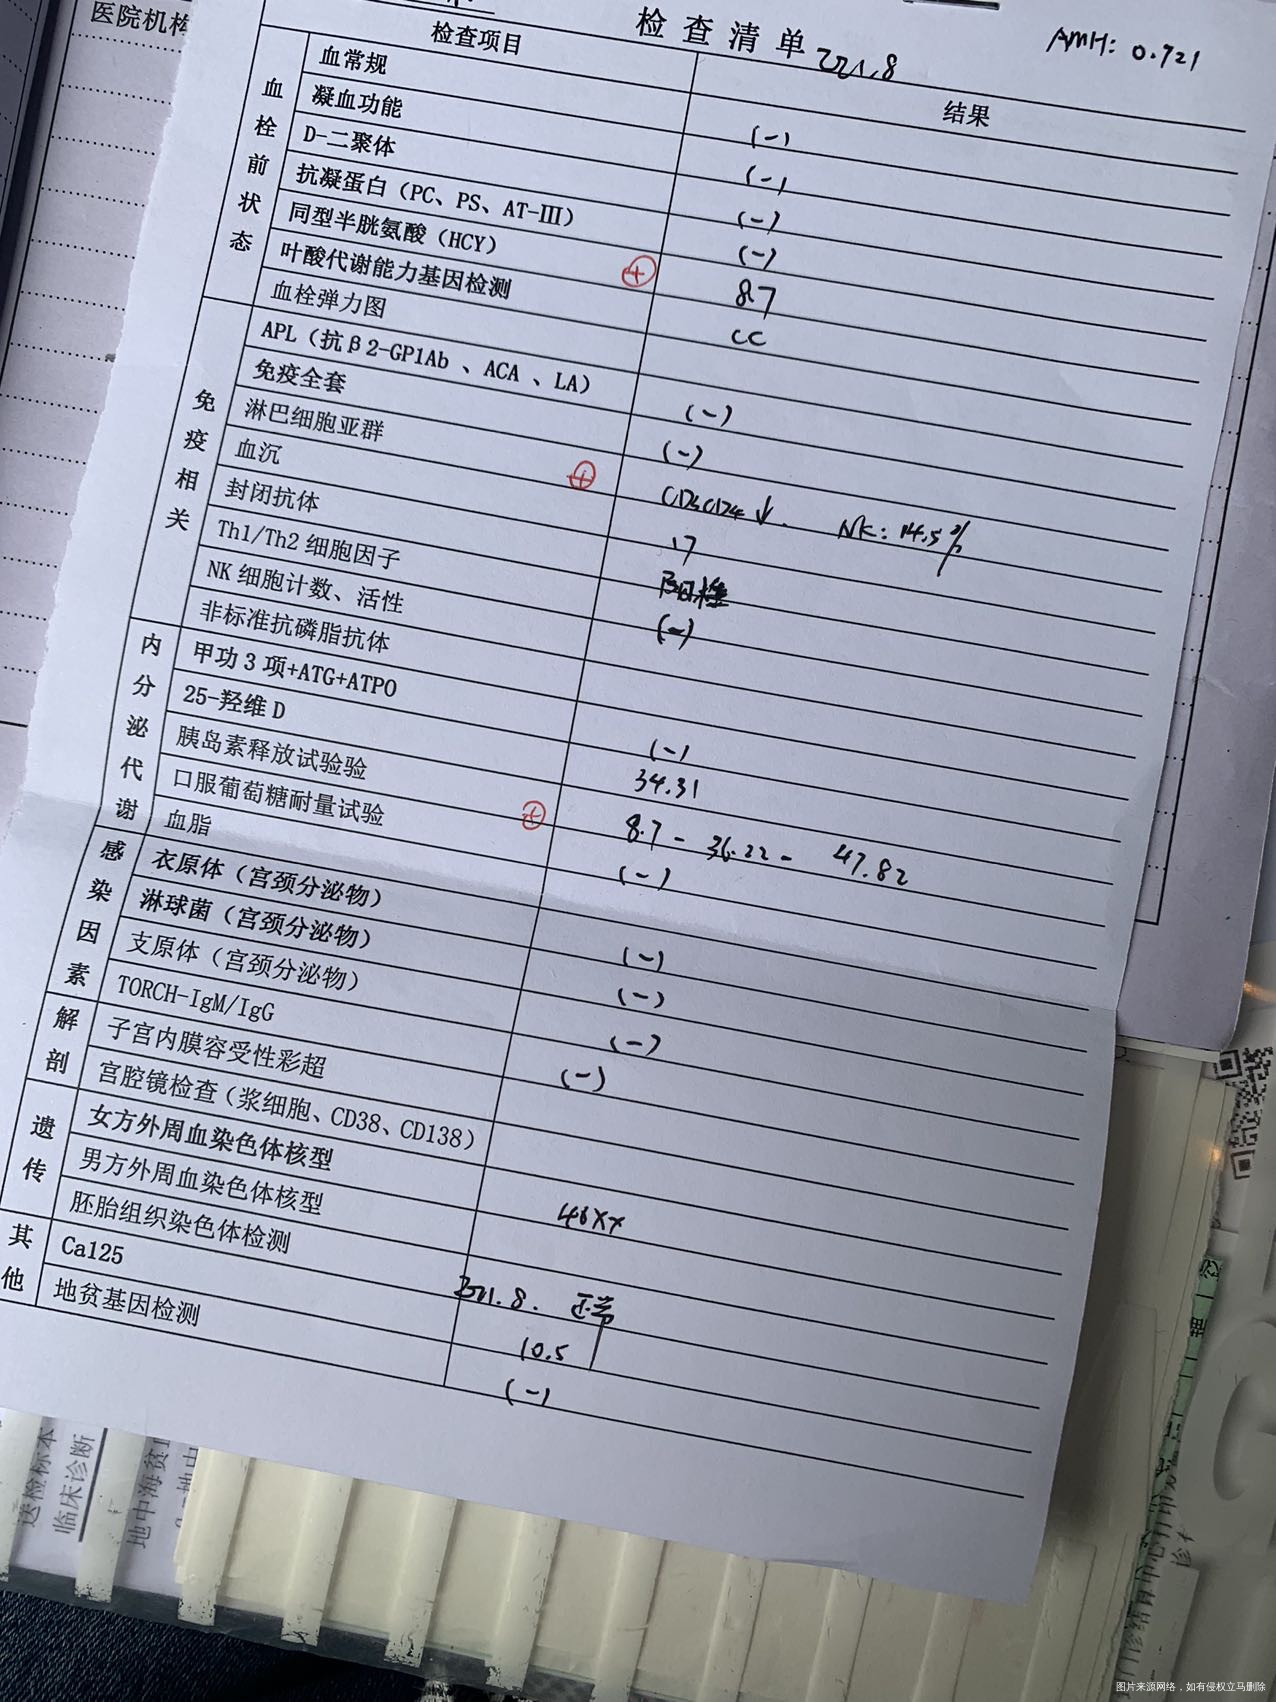 医院机构
检查清单 AMH: 0.721
检查项目 结果
血栓前状态
血常规 (-)
凝血功能 (-)
D-二聚体 (-)
抗凝蛋白（PC、PS、AT-Ⅲ） (-)
同型半胱氨酸（HCY） 8.7
叶酸代谢能力基因检测 ⊕ CC
血栓弹力图
免疫相关
APL（抗β2-GP1Ab 、ACA 、LA） (-)
免疫全套 (-)
淋巴细胞亚群 ⊕ CD3CD4↓. NK: 14.5%
血沉 17
封闭抗体
Th1/Th2 细胞因子 (-)
NK 细胞计数、活性
非标准抗磷脂抗体
内分泌代谢
甲功 3 项+ATG+ATPO (-)
25-羟维 D 34.31
胰岛素释放试验验 ⊕ 8.7 - 36.22 - 47.82
口服葡萄糖耐量试验 (-)
血脂
感染因素
衣原体（宫颈分泌物） (-)
淋球菌（宫颈分泌物） (-)
支原体（宫颈分泌物） (-)
TORCH-IgM/IgG (-)
解剖
子宫内膜容受性彩超
宫腔镜检查（浆细胞、CD38、CD138）
遗传
女方外周血染色体核型 46XX
男方外周血染色体核型
胚胎组织染色体检测 正常
其他
Ca125 10.5
地贫基因检测 (-)
送检标本
临床诊断
地中海贫
图片来源网络，如有侵权立马删除